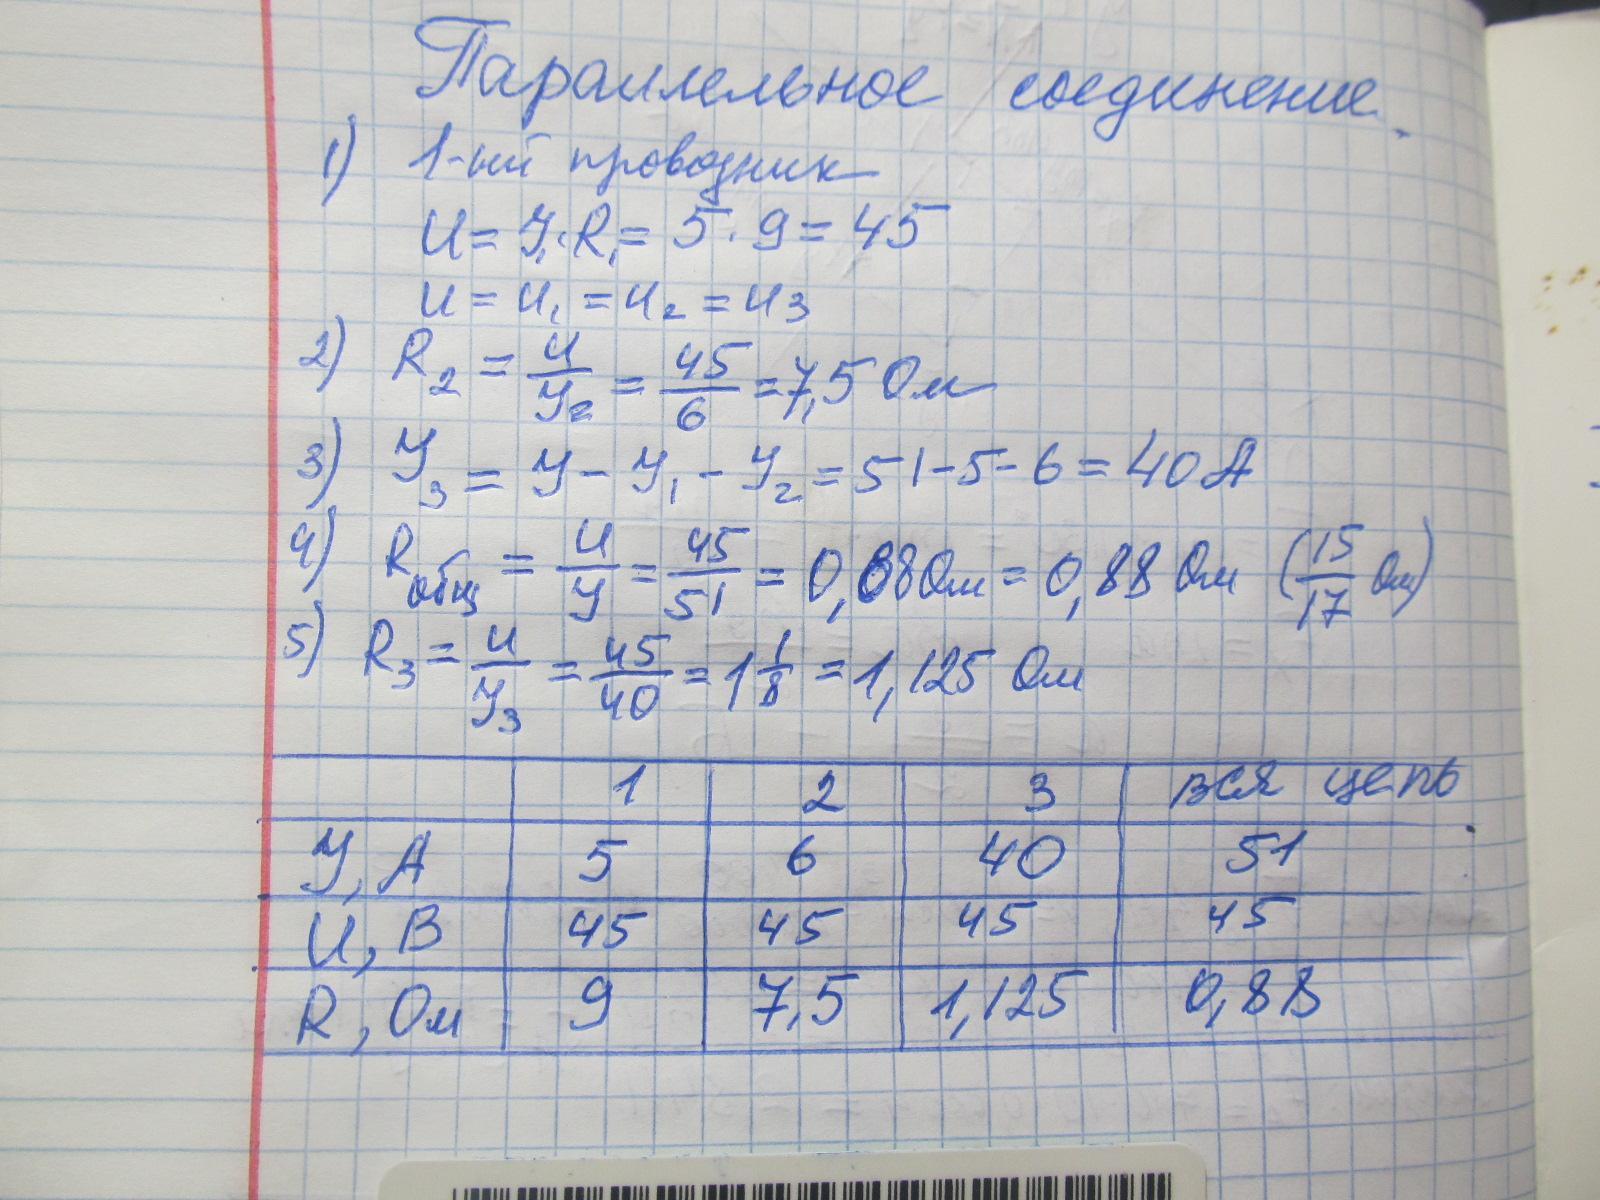 Параллельное соединение.
1) 1-ый проводник
U = У₁·R₁ = 5·9 = 45
U = U₁ = U₂ = U₃
2) R₂ = U/У₂ = 45/6 = 7,5 Ом
3) У₃ = У - У₁ - У₂ = 51-5-6 = 40 А
4) Rобщ = U/У = 45/51 = 0,88 Ом = 0,88 Ом (15/17 Ом)
5) R₃ = U/У₃ = 45/40 = 1 1/8 = 1,125 Ом
1 2 3 вся цепь
У, А 5 6 40 51
U, В 45 45 45 45
R, Ом 9 7,5 1,125 0,88